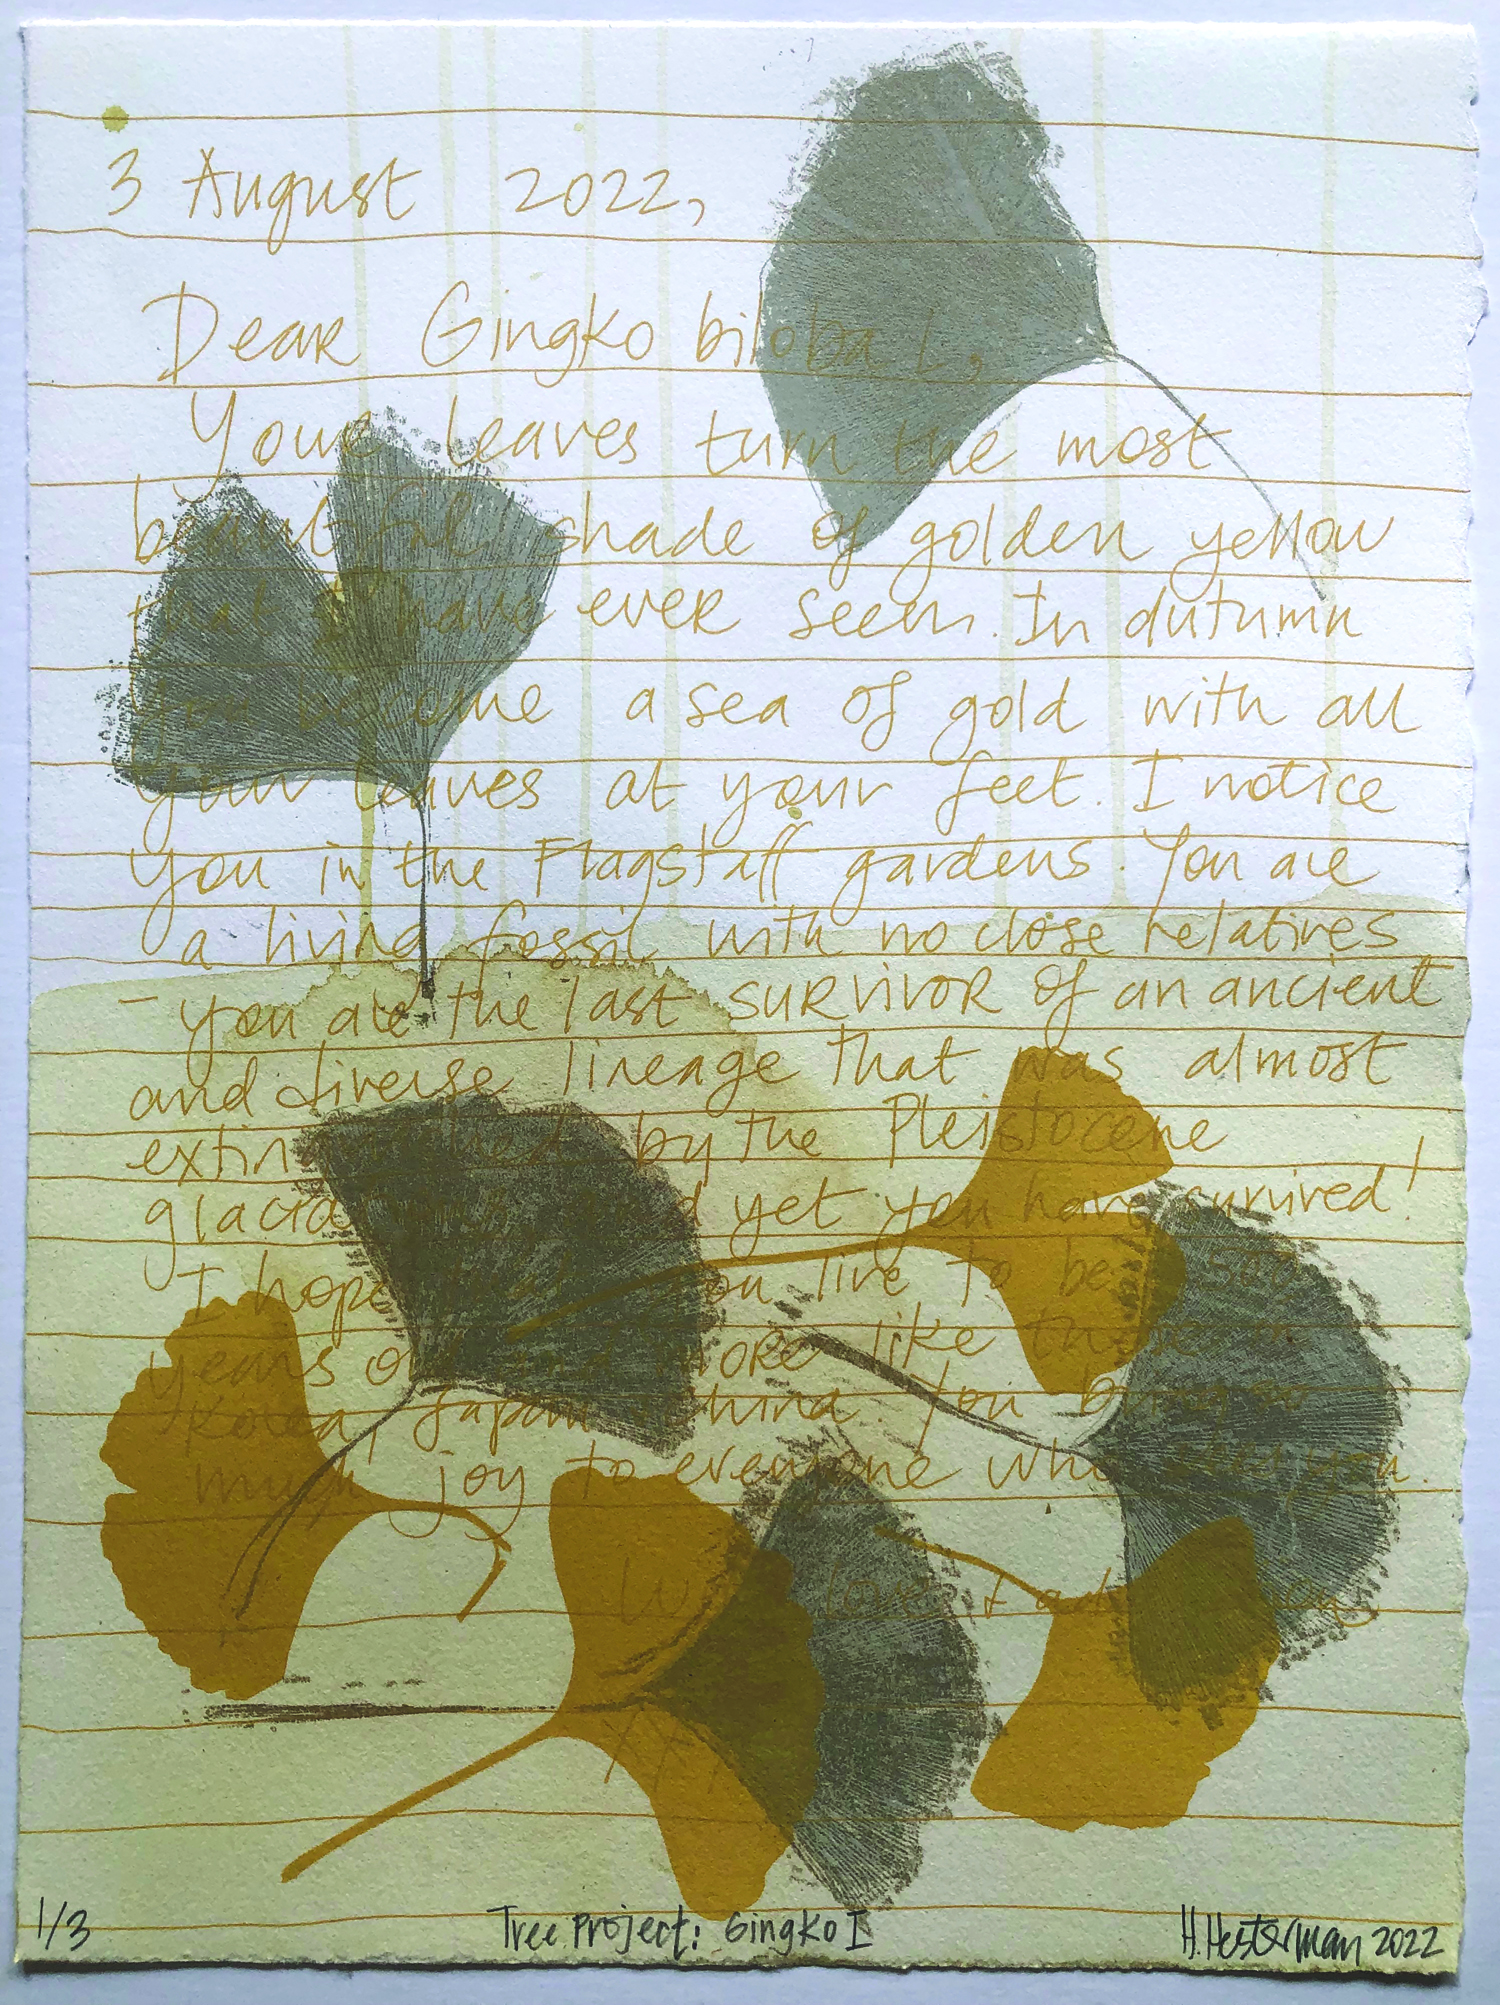 3 August 2022,
Dear Gingko biloba L,
Your leaves turn the most
beautiful shade of golden yellow
that I have ever seen. In autumn
you become a sea of gold with all
your leaves at your feet. I notice
you in the Flagstaff gardens. You are
a living fossil with no close relatives
- you are the last survivor of an ancient
and diverse lineage that was almost
by the Pleistocene
yet you have survived!
I hope you live to be
years more like those in
Korea, Japan China. You bring so
much joy to everyone who you.
With love
XXX
1/3 Tree Project: Gingko I H. Hesterman 2022